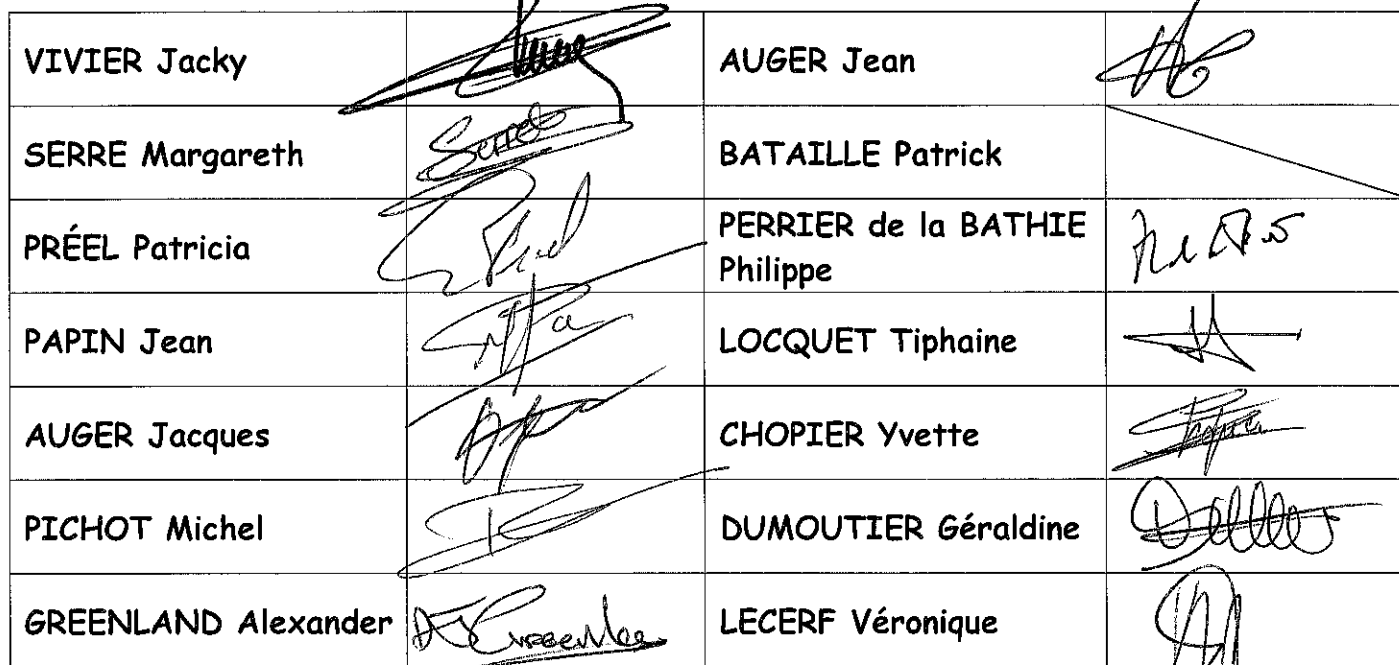 VIVIER Jacky
AUGER Jean
SERRE Margareth
Serre
BATAILLE Patrick
PRÉEL Patricia
PERRIER de la BATHIE
Philippe
PAPIN Jean
LOCQUET Tiphaine
AUGER Jacques
CHOPIER Yvette
PICHOT Michel
DUMOUTIER Géraldine
GREENLAND Alexander
LECERF Véronique